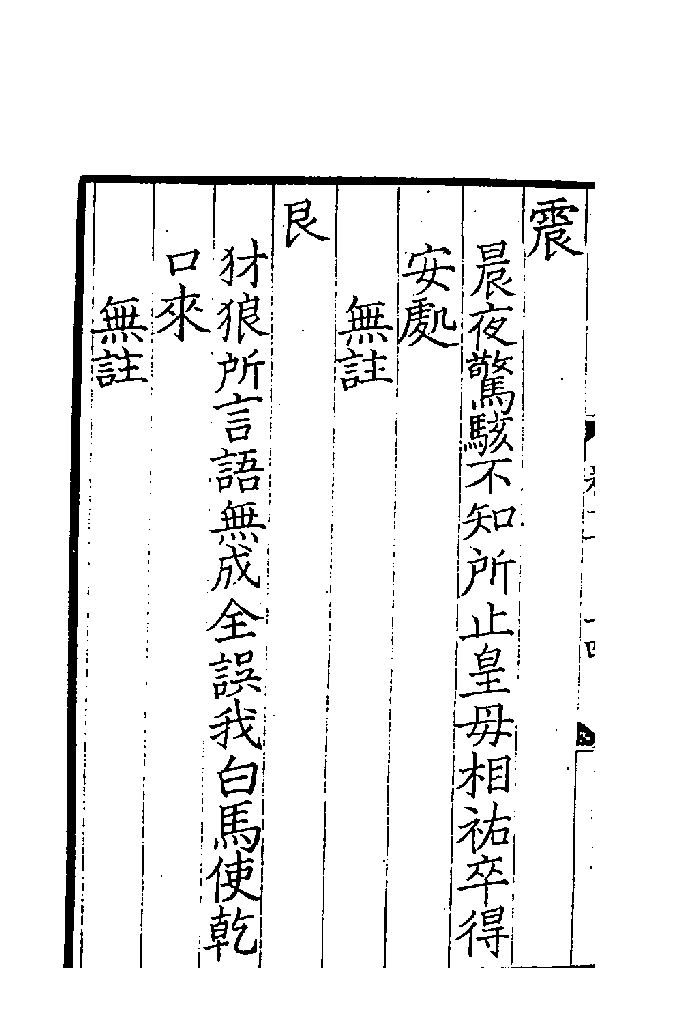 震
晨夜驚駭不知所止皇毋相祐卒得
安處
無註
艮
犲狼所言語無成全誤我白馬使乾
口來
無註